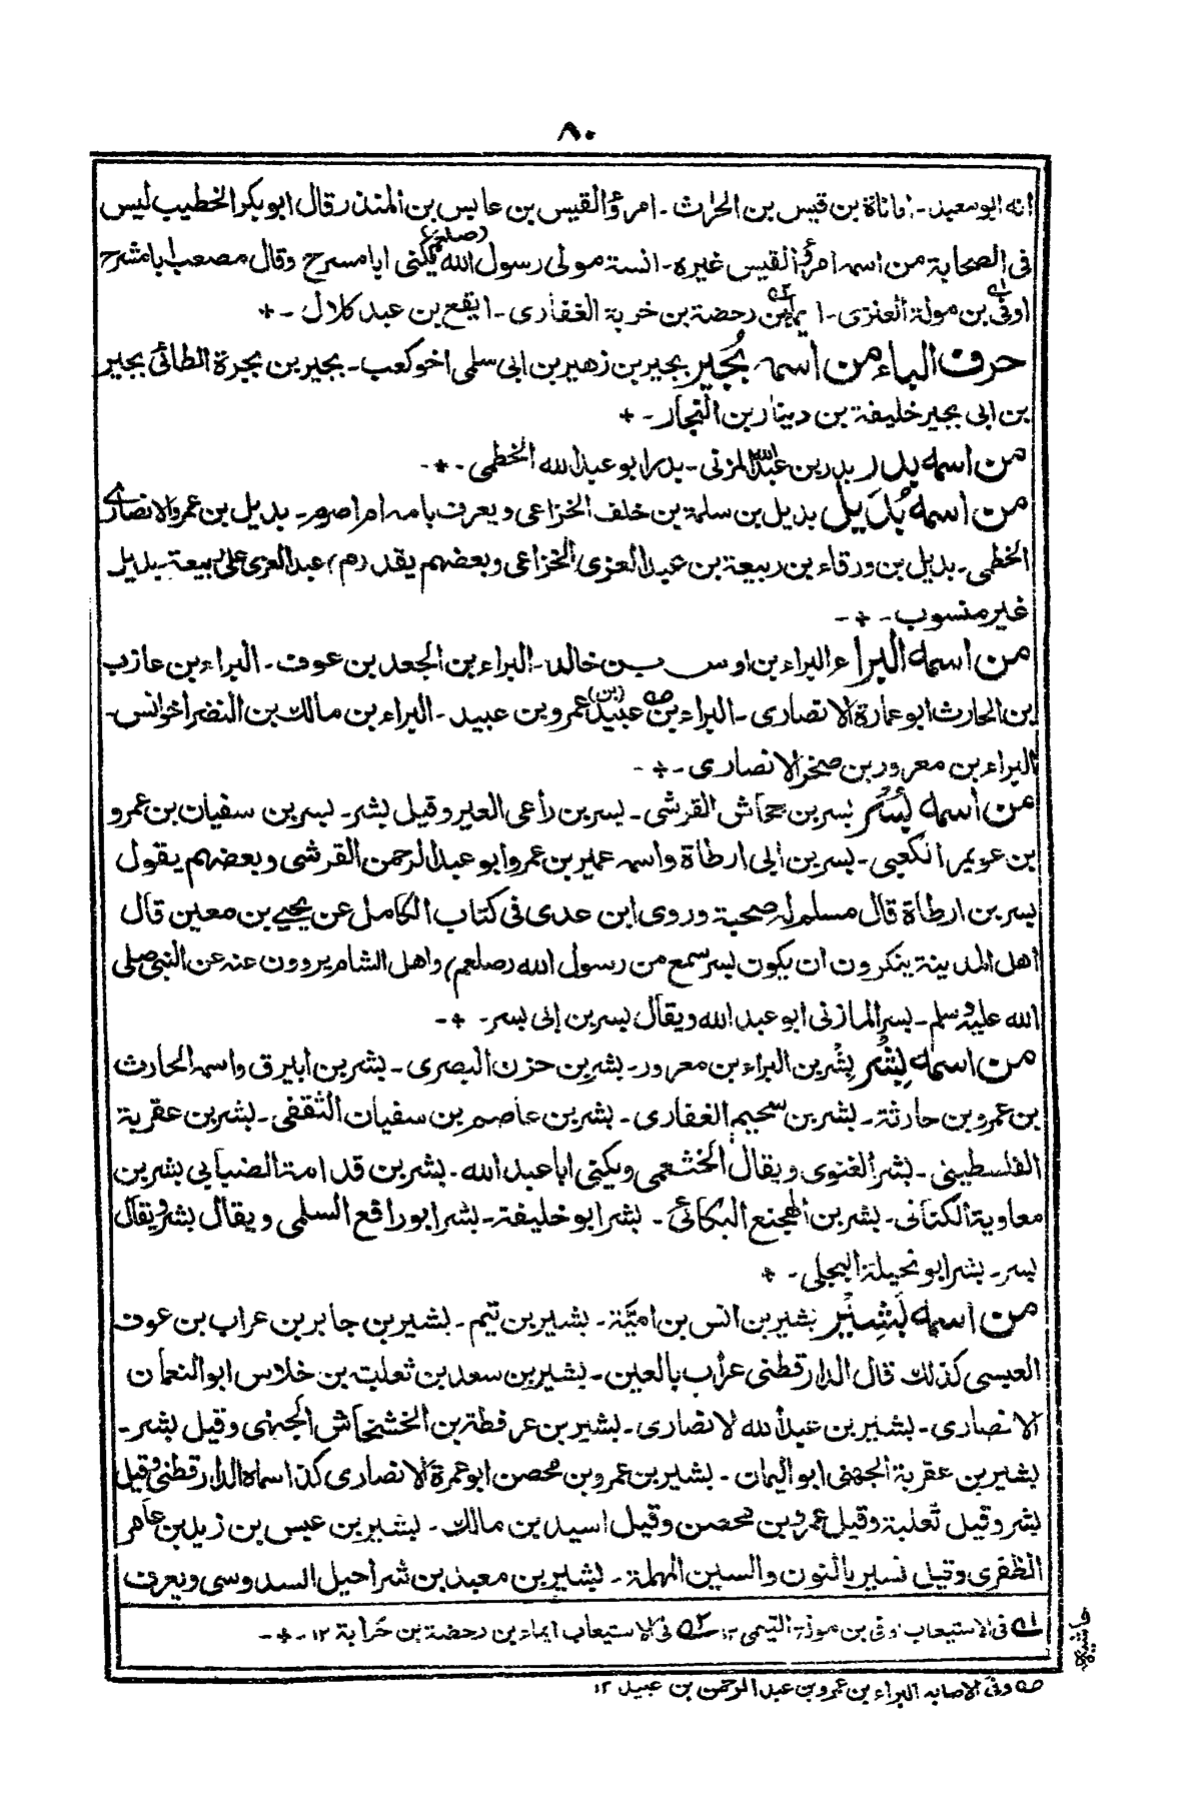 ٨٠
انه ابو سعيد - اناة بن قيس بن الحارث - امرؤ القيس بن عابس بن المنذر قال ابو بكر الخطيب ليس
فى الصحابة من اسمه امرؤ القيس غيره - انسة مولى رسول الله (صلعم) يكنى ابا مسرح وقال مصعب ابا مشرح
اوفى بن مولة العنزى - ايماء بن رحضة بن خربة الغفارى - ايفع بن عبد كلال -
حرف الباء من اسمه بُجَير بجير بن زهير بن ابى سلمى اخو كعب - بجير بن بجرة الطائى بجير
بن ابى بجير خليفة بن دينار بن النجار -
من اسمه بدر بدر بن عبد الله المزنى - بدر ابو عبد الله الخطمى -
من اسمه بُدَيل بديل بن سلمة بن خلف الخزاعى ويعرف بامه ام اصرم - بديل بن عمرو الانصارى
الخطمى - بديل بن ورقاء بن ربيعة بن عبد العزى الخزاعى وبعضهم يقد (م) عبد العزى على ربيعة - بديل
غير منسوب -
من اسمه البراء البراء بن اوس بن خالد - البراء بن الجعد بن عوف - البراء بن عازب
بن الحارث ابو عمارة الانصارى - البراء بن عبيد (بن) عمرو بن عبيد - البراء بن مالك بن النضر اخو انس -
البراء بن معرور بن صخر الانصارى -
من اسمه بُسُر بسر بن جحاش القرشى - بسر بن راعى العير وقيل بشر - بسر بن سفيان بن عمرو
بن عويمر الكعبى - بسر بن ابى ارطاة واسمه عمير بن عمرو ابو عبد الرحمن القرشى وبعضهم يقول
بسر بن ارطاة قال مسلم له صحبة وروى ابن عدى فى كتاب الكامل عن يحيى بن معين قال
اهل المدينة ينكرون ان يكون بسر سمع من رسول الله (صلعم) واهل الشام يروون عنه عن النبى صلى
الله عليه وسلم - بسر المازنى ابو عبد الله ويقال بسر بن ابى بسر -
من اسمه بِشْر بِشْر بن البراء بن معرور - بشر بن حزن البصرى - بشر بن ابيرق واسمه الحارث
بن عمرو بن حارثة - بشر بن سحيم الغفارى - بشر بن عاصم بن سفيان الثقفى - بشر بن عقربة
الفلسطينى - بشر الغنوى ويقال الخثعمى ويكنى ابا عبد الله - بشر بن قدامة الضبابى بشر بن
معاوية الكنانى - بشر بن الهجنع البكائى - بشر ابو خليفة - بشر ابو رافع السلمى ويقال بشر ويقال
بسر - بشر ابو نحيلة البجلى -
من اسمه بَشِيْر بشير بن انس بن امية - بشير بن تيم - بشير بن جابر بن عراب بن عوف
العبسى كذلك قال الدارقطنى عراب بالعين - بشير بن سعد بن ثعلبة بن خلاس ابو النعمان
الانصارى - بشير بن عبد الله لانصارى - بشير بن عرفطة بن الخشخاش الجهنى وقيل بشر -
بشير بن عقربة الجهنى ابو اليمان - بشير بن عمرو بن محصن ابو عمرة الانصارى كذا سماه الدارقطنى وقيل
بشر وقيل ثعلبة وقيل عمرو بن محصن وقيل اسيد بن مالك - بشير بن عبس بن زيد بن عامر
الظفرى وقيل نسير بالنون والسين المهملة - بشير بن معبد بن شراحيل السدوسى ويعرف
حاشيه
١ فى الاستيعاب اوفى بن مولة التيمى ١٢ ٢ فى الاستيعاب ايماء بن رحضة بن خرابة ١٢ -
ص وفى الاصابه البراء بن عمرو بن عبد الرحمن بن عبيد ١٢